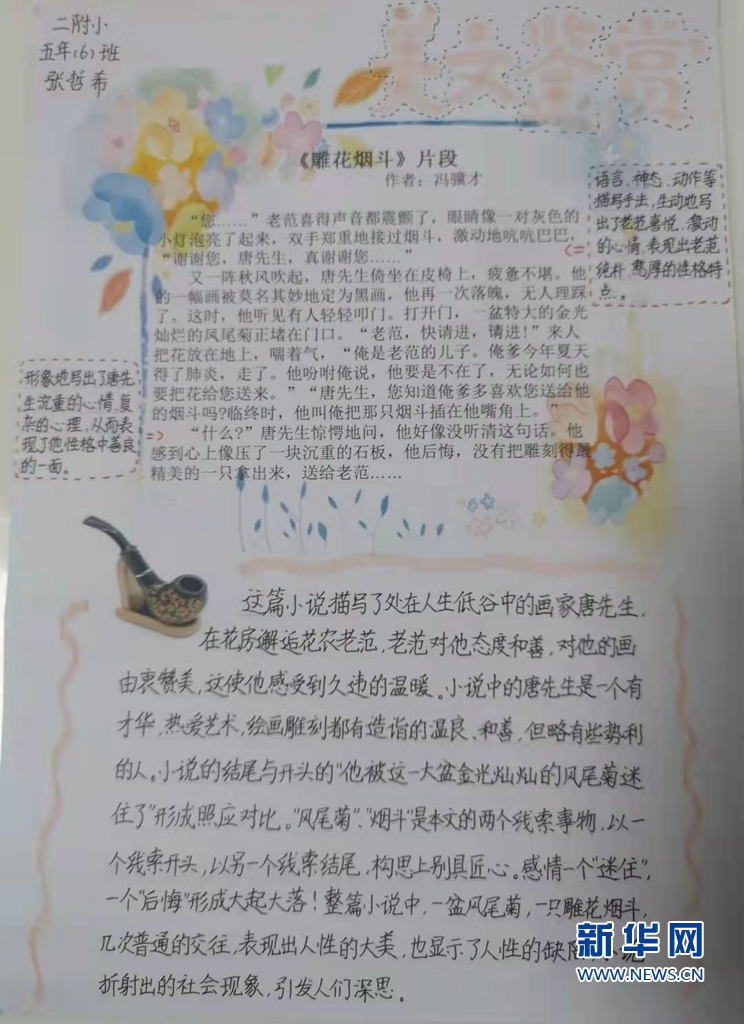 二附小
五年(6)班
张哲希
美文鉴赏
《雕花烟斗》片段
作者：冯骥才
“您……”老范喜得声音都震颤了，眼睛像一对灰色的
小灯泡亮了起来，双手郑重地接过烟斗，激动地吭吭巴巴，
“谢谢您，唐先生，真谢谢您……”
又一阵秋风吹起，唐先生倚坐在皮椅上，疲惫不堪。他
的一幅画被莫名其妙地定为黑画，他再一次落魄，无人理踩
了。这时，他听见有人轻轻叩门。打开门，一盆特大的金光
灿烂的凤尾菊正堵在门口。“老范，快请进，请进！”来人
把花放在地上，喘着气，“俺是老范的儿子。俺爹今年夏天
得了肺炎，走了。他吩咐俺说，他要是不在了，无论如何也
要把花给您送来。”“唐先生，您知道俺爹多喜欢您送给他
的烟斗吗?临终时，他叫俺把那只烟斗插在他嘴角上。”
“什么?”唐先生惊愕地问，他好像没听清这句话。他
感到心上像压了一块沉重的石板，他后悔，没有把雕刻得最
精美的一只拿出来，送给老范……
语言、神态、动作等
描写手法，生动地写
出了老范喜悦、激动
的心情，表现出老范
纯朴、憨厚的性格特
点。
形象地写出了唐先
生沉重的心情，复
杂的心理，从而表
现了他性格中善良
的一面。
这篇小说描写了处在人生低谷中的画家唐先生，
在花房邂逅花农老范，老范对他态度和善，对他的画
由衷赞美，这使他感受到久违的温暖。小说中的唐先生是一个有
才华，热爱艺术，绘画雕刻都有造诣的温良、和善，但略有些势利
的人。小说的结尾与开头的“他被这一大盆金光灿灿的凤尾菊迷
住了”形成照应对比。“凤尾菊”、“烟斗”是本文的两个线索事物，以一
个线索开头，以另一个线索结尾，构思上别具匠心。感情一个“迷住”，
一个“后悔”形成大起大落！整篇小说中，一盆凤尾菊，一只雕花烟斗，
几次普通的交往，表现出人性的大美，也显示了人性的缺
折射出的社会现象，引发人们深思。
新华网
WWW.NEWS.CN